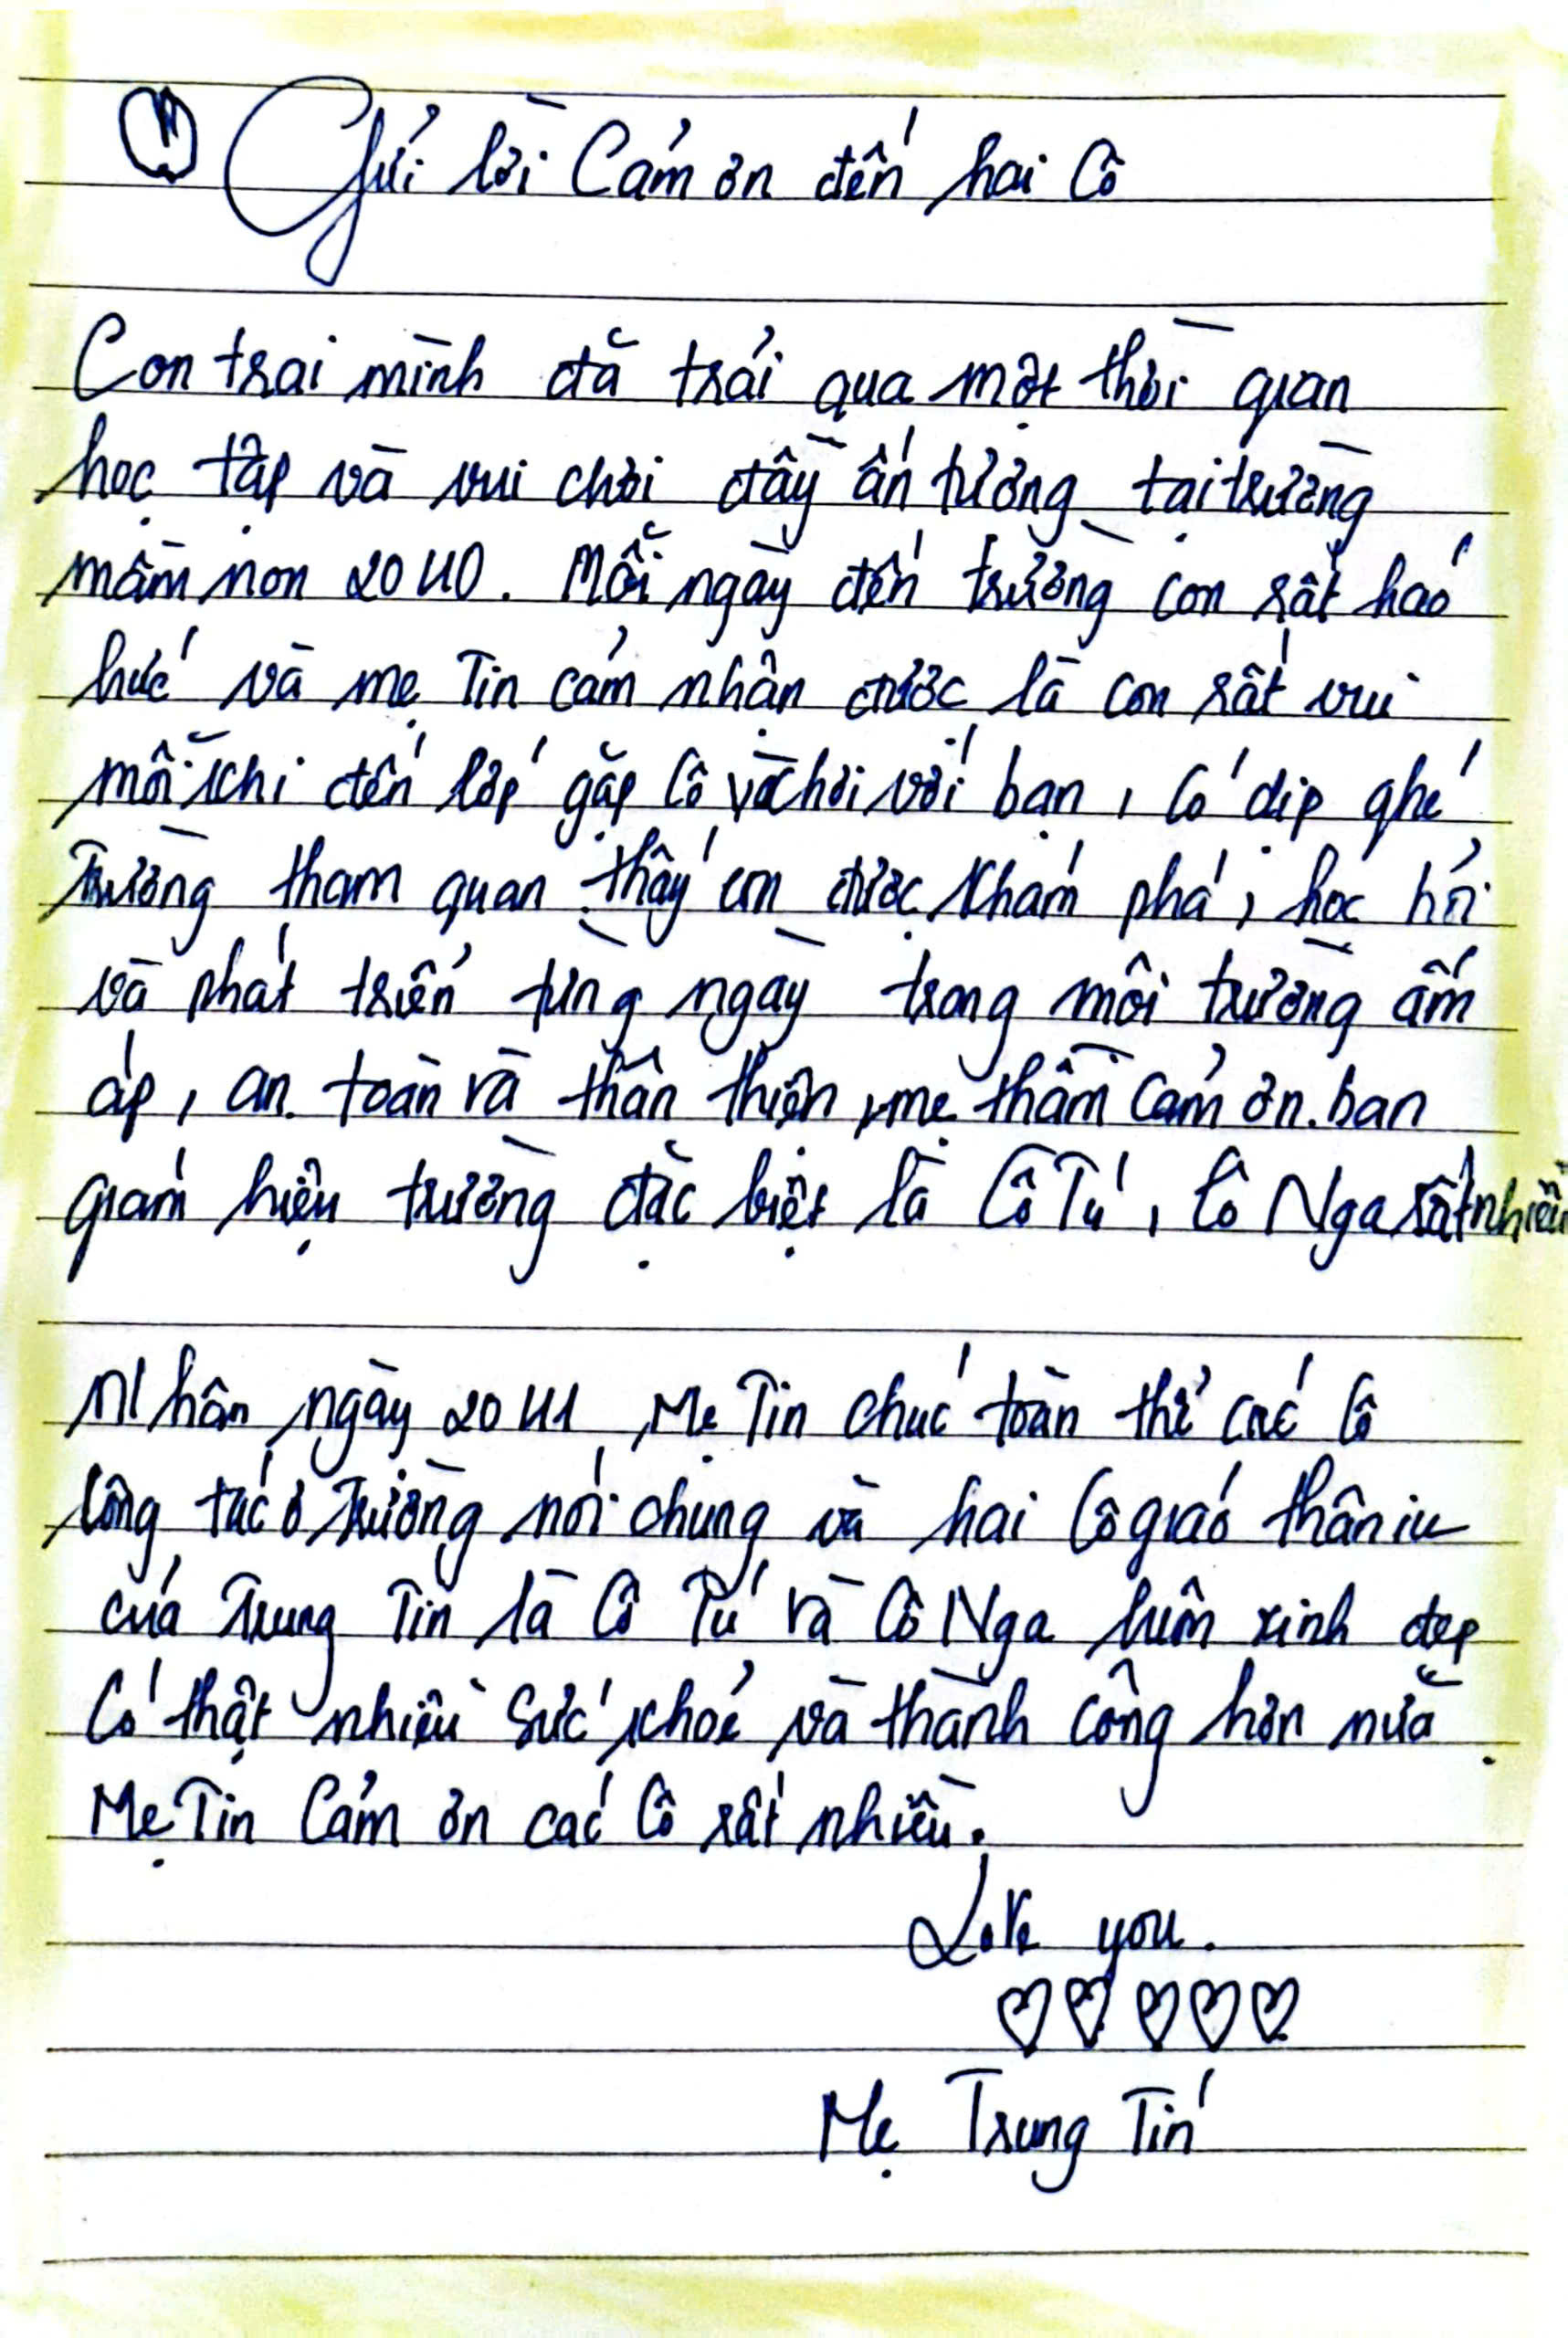 Gửi lời Cảm ơn đến hai Cô
Con trai mình đã trải qua một thời gian
học tập và vui chơi đầy ấn tượng tại trường
mầm non 20/10. Mỗi ngày đến trường con rất háo
hức và mẹ Tin cảm nhận được là con rất vui
mỗi khi đến lớp gặp Cô và chơi với bạn, Có dịp ghé
Trường tham quan thấy con được khám phá, học hỏi
và phát triển từng ngày trong môi trường ấm
áp, an toàn và thân thiện, mẹ thầm cảm ơn ban
giám hiệu trường đặc biệt là Cô Tú, Cô Nga rất nhiều
Nhân ngày 20/11, Mẹ Tin chúc toàn thể các Cô
Công tác ở Trường nói chung và hai Cô giáo thân iu
của Trung Tín là Cô Tú và Cô Nga luôn xinh đẹp
Có thật nhiều sức khỏe và thành công hơn nữa
Mẹ Tin Cảm ơn các Cô rất nhiều.
Love you.
♡♡♡♡♡
Mẹ Trung Tín